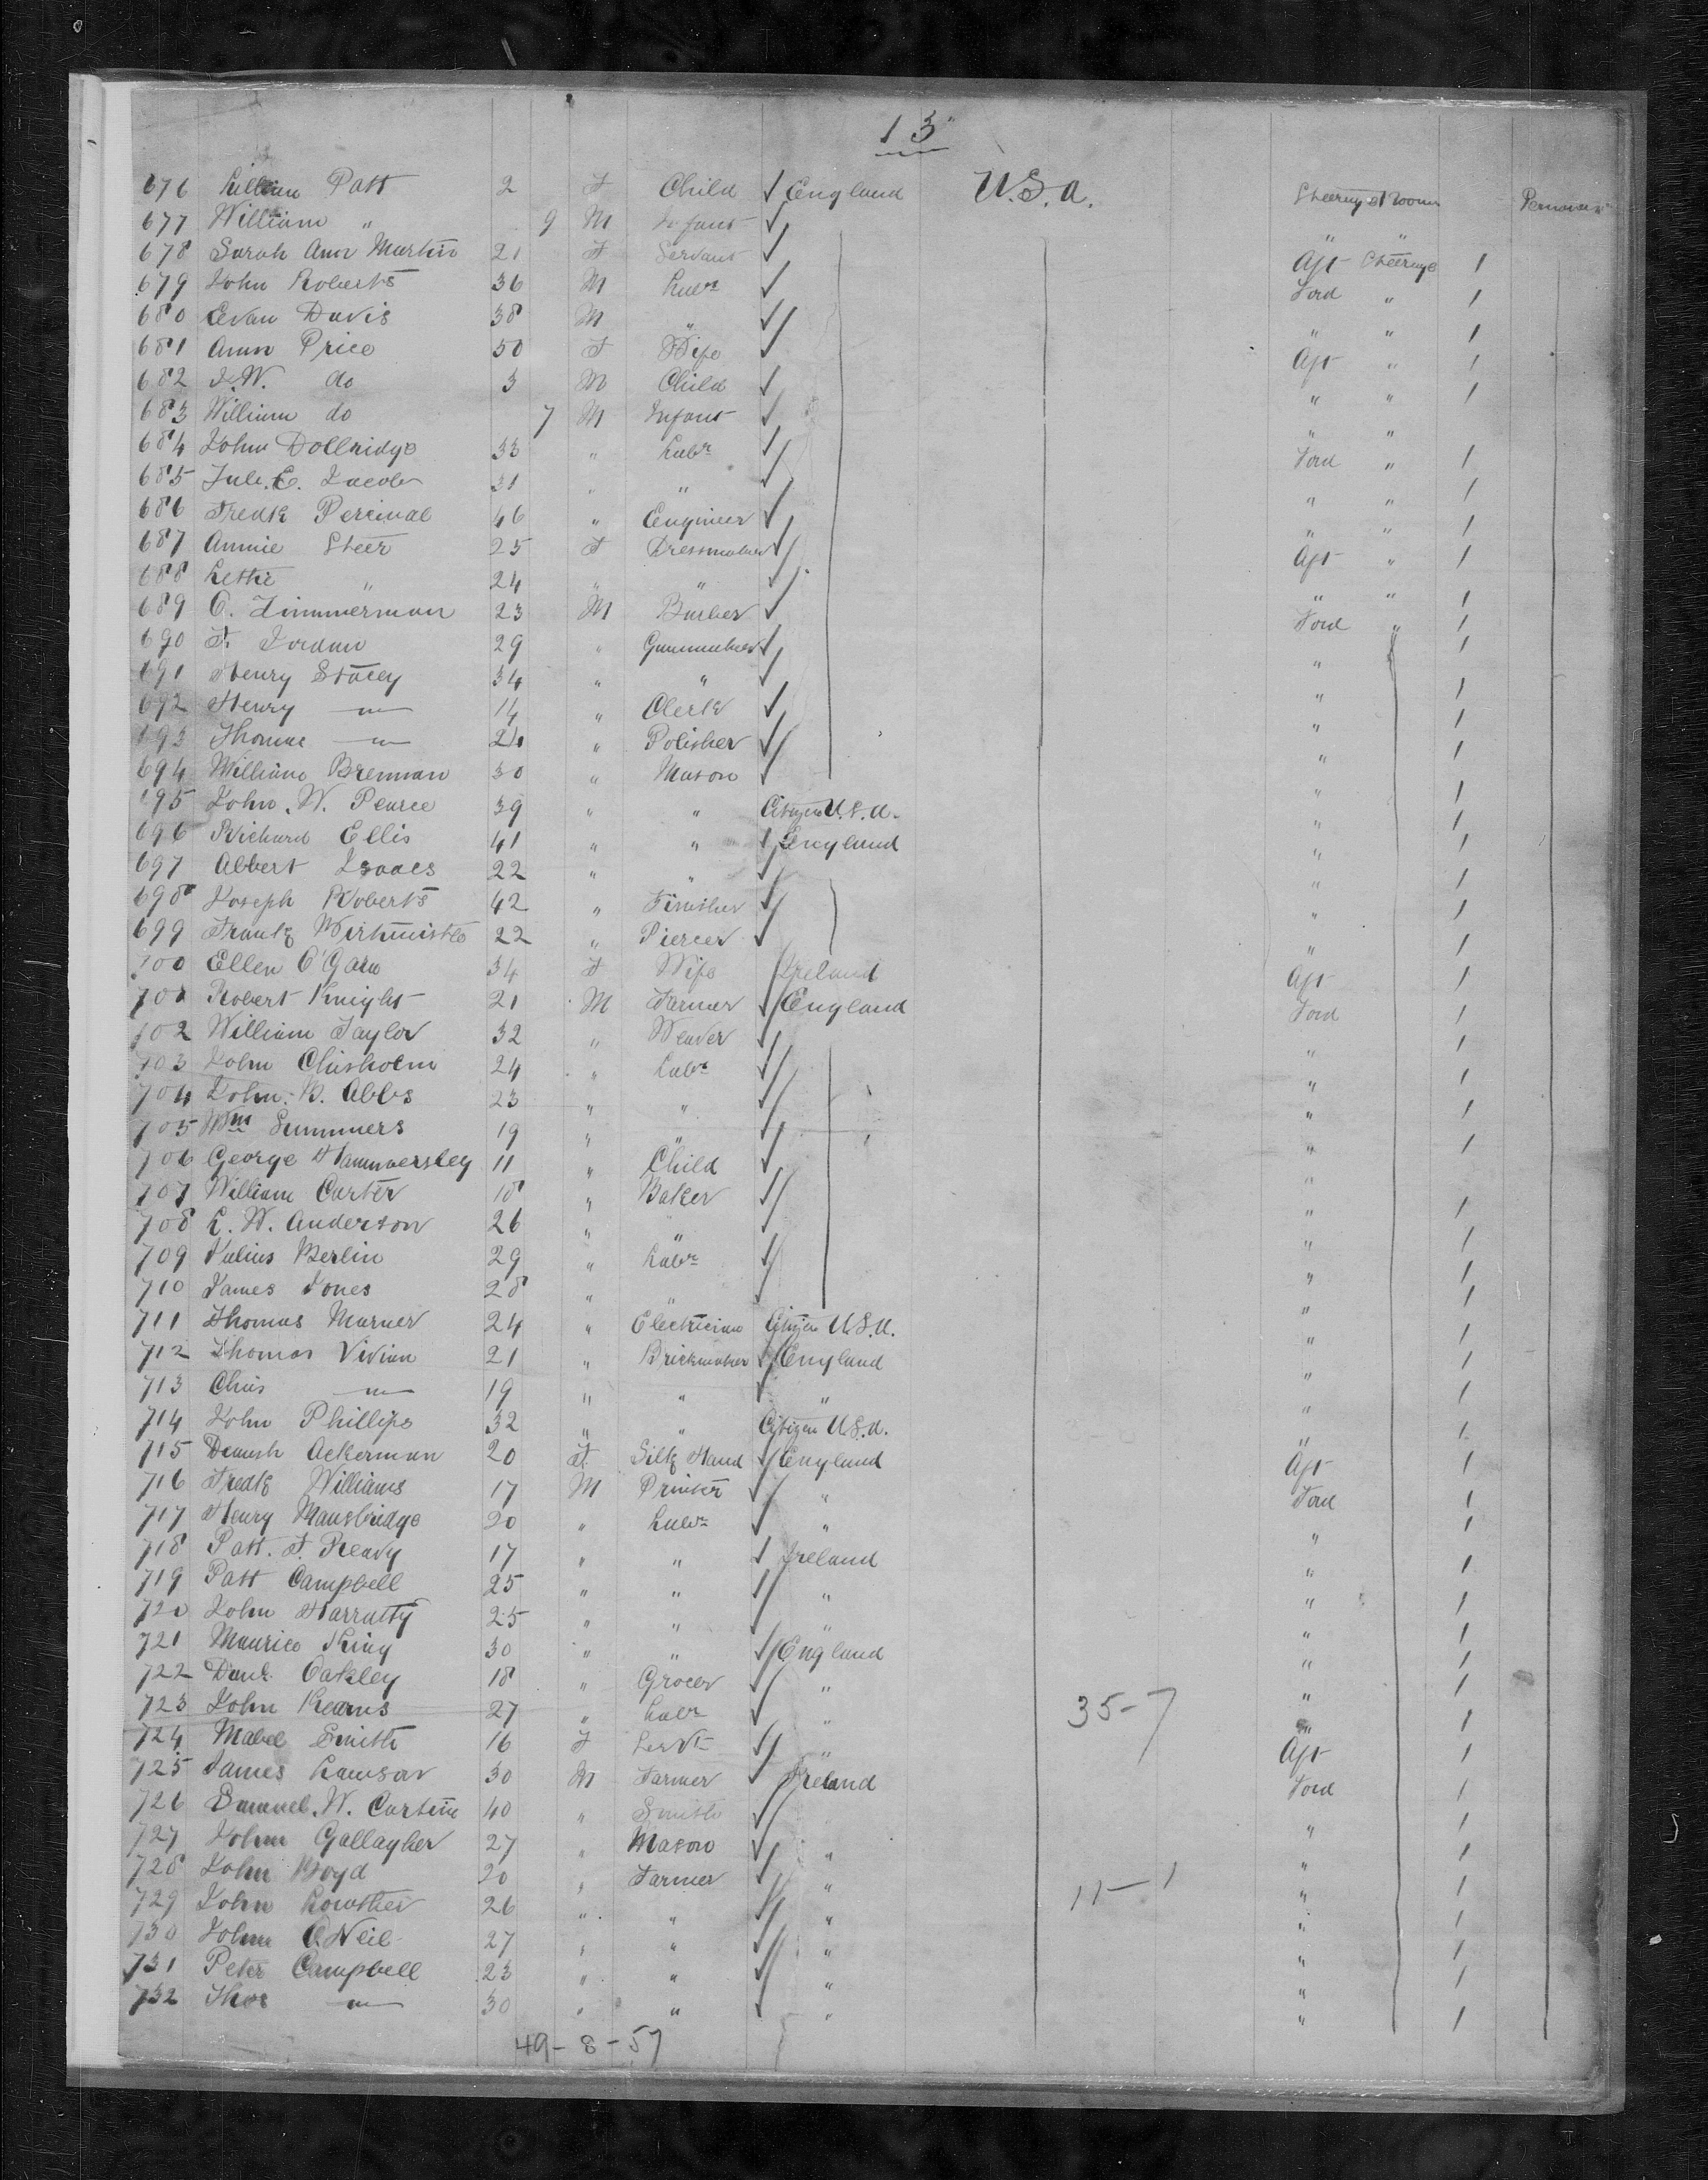 13
676 Lillian Patt 2 F Child ✓ England U.S.A. Steerage Rooms Permanent
677 William " 9 M Infant ✓ " "
678 Sarah Ann Martin 21 F Servant ✓ Aft Steerage 1
679 John Roberts 36 M Labr ✓ Ford " 1
680 Evan Davis 38 M " ✓ " " 1
681 Ann Price 50 F Wife ✓ Aft " 1
682 I.W. do 3 M Child ✓ " " 1
683 William do 7 M Infant ✓ " "
684 John Dollridge 33 " Labr ✓ Ford " 1
685 E. Jacob 31 " " ✓ " " 1
686 Fredk Percival 46 " Engineer ✓ " " 1
687 Annie Steer 25 F Dressmaker ✓ Aft " 1
688 Lettie " 24 " " ✓ " " 1
689 O. Zimmerman 23 M Barber ✓ Ford " 1
690 F. Jordan 29 " Gunmaker ✓ " 1
691 Henry Stacey 34 " " ✓ " 1
692 Henry — 14 " Clerk ✓ " 1
693 Thomas — 24 " Polisher ✓ " 1
694 William Brennan 30 " Mason ✓ " 1
695 John. W. Pearce 39 " " Citizen U.S.A. " 1
696 Richard Ellis 41 " " ✓ England " 1
697 Albert Isaacs 22 " " ✓ " 1
698 Joseph Roberts 42 " Finisher ✓ " 1
699 Frank 22 " Piercer ✓ " 1
700 Ellen O'Gara 34 F Wife Ireland Aft 1
701 Robert Knight 21 M Farmer ✓ England Ford 1
702 William Taylor 32 " Weaver ✓ " 1
703 John Chisholm 24 " Labr ✓ " 1
704 John. B. Abbs 23 " " ✓ " 1
705 Wm Summers 19 " " ✓ " 1
706 George Hammersley 11 " Child ✓ "
707 William Carter 18 " Baker ✓ " 1
708 L. W. Anderson 26 " " ✓ " 1
709 Julius Berlin 29 " Labr ✓ " 1
710 James Jones 28 " " ✓ " 1
711 Thomas Marner 24 " Electrician Citizen U.S.A. " 1
712 Thomas Vivian 21 " Brickmaker ✓ England " 1
713 Chas — 19 " " ✓ " " 1
714 John Phillips 32 " " Citizen U.S.A. " 1
715 Ackerman 20 F. Silk Hand ✓ England Aft 1
716 Fredk Williams 17 M Printer ✓ " Ford 1
717 Henry Mansbridge 20 " Labr ✓ " " 1
718 Patt. F. Reavy 17 " " ✓ Ireland " 1
719 Patt Campbell 25 " " ✓ " " 1
720 John Harratty 25 " " ✓ " " 1
721 Maurice King 30 " " ✓ England " 1
722 Danl. Oakley 18 " Grocer ✓ " " 1
723 John Kearns 27 " Labr ✓ " 35-7 " 1
724 Mabel Smith 16 F Servt ✓ " Aft 1
725 James Lawson 30 M Farmer ✓ Ireland Ford 1
726 Samuel. W. 40 " Smith ✓ " 1
727 John Gallagher 27 " Mason ✓ " " 1
728 John Boyd 20 " Farmer ✓ " 11-1 " 1
729 John Lowther 26 " " ✓ " " 1
730 John O'Neil 27 " " ✓ " " 1
731 Peter Campbell 23 " " ✓ " " 1
732 Thos — 30 " " ✓ " " 1
49-8-57